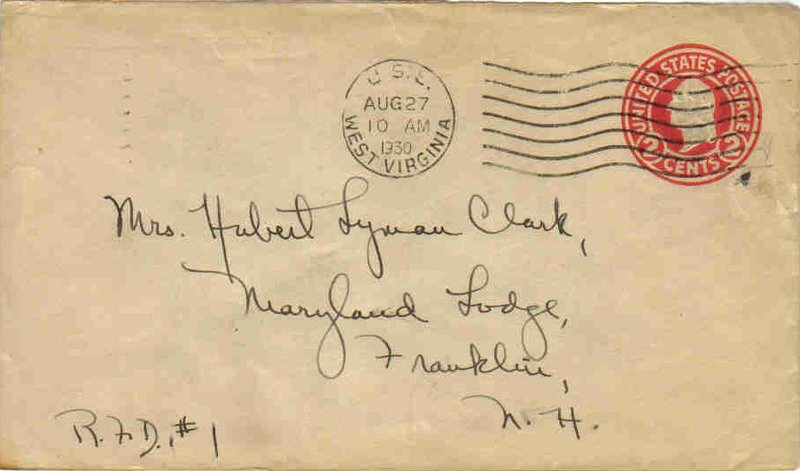 U.S.S.
AUG 27
10 AM
1930
WEST VIRGINIA
UNITED STATES POSTAGE
2 CENTS 2
Mrs. Hubert Lyman Clark,
Maryland Lodge,
Franklin,
N. H.
R.F.D. #1